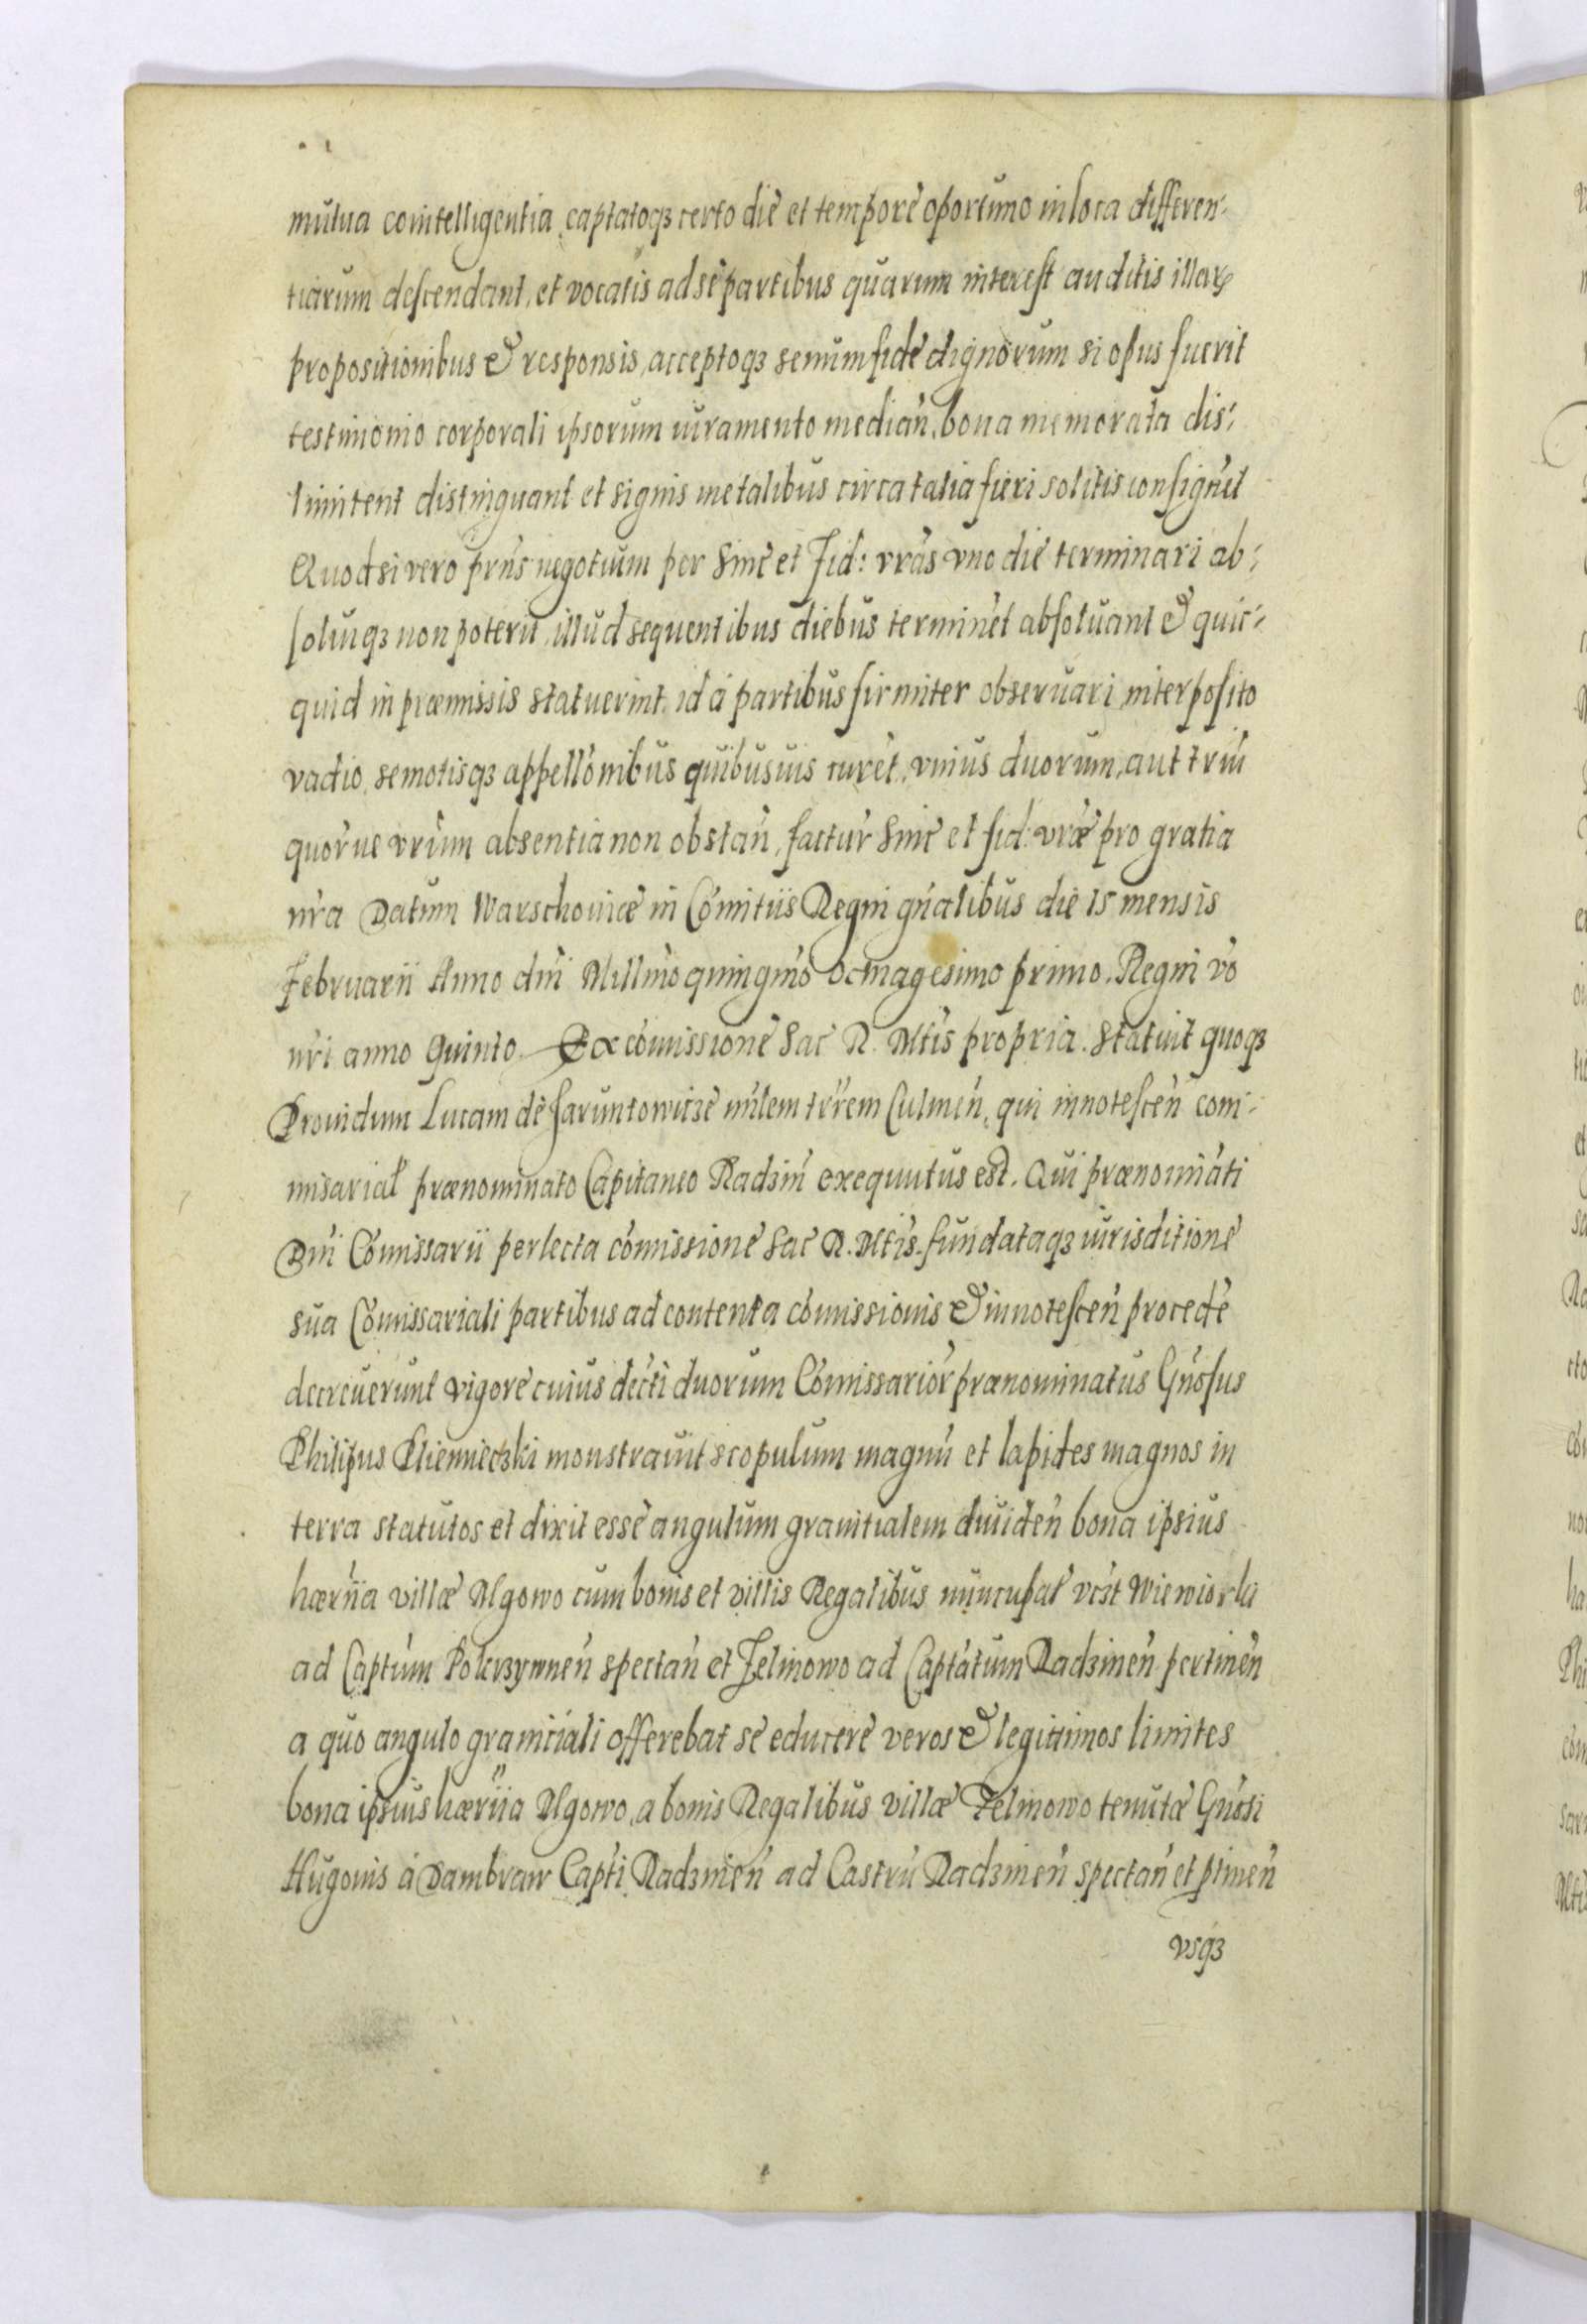 mutua cointelligentia captatoqз certo die et tempore oportuno in loca differen-
tiarum descendant, et vocatis ad se partibus quarum interest auditis illarꝝ
propositionibus et responsis, acceptoqз senum fide dignorum si opus fuerit
testimonio corporali ipsorum iuramento median, bona memorata dis-
limitent distinguant et signis metalibus circa talia fieri solitis consignet
Quod si vero prn̄s negotium per Sinc̄ et Fid: vrās vno die terminari ab-
soluiqз non poterit, illud sequentibus diebus terminet absoluant et quic-
quid in præmissis statuerint id á partibus firmiter obseruari, interposito
vadio, semotisqз appellōnibus quibusuis curēt, vnius duorum, aut triū
quorūe vrūm absentia non obstan̄, factur̄ Sinc̄ et fid: vrǣ pro gratia
nrā Datum Warschouiæ in Comitiis Regni gn̄alibus die 15 mensis
Februarii Anno dn̄i Millmo quingmo octuagesimo primo. Regni vo
nr̄i anno Quinto. Ex com̄issione Sac̄ R. Mtis propria. Statuit quoqз
Prouidum Lucam de Saruntowicze mn̄lem trr̄em Culmen̄, qui innotescen̄ com-
misarial prænominato Capitaneo Radzin̄ exequutus est. Qui prænominati
Dn̄i Com̄issarii perlecta com̄issione Sac̄ R. Mtis. fundataqз iurisditione
sua Com̄issariali partibus ad contenta com̄issionis et innotescen̄ procedē
decreuerunt vigore cuius decti duorum Com̄issarior̄ prænominatus Gn̄osus
Philipus Plemieczki monstrauit scopulum magnū et lapides magnos in
terra statutos et dixit esse angulum granitialem diuiden̄ bona ipsius
hærn̄ia villæ Mgowo cum bonis et villis Regalibus nuncupat̄ vc̄st Wiewiorki
ad Captum Pokrzywnen̄ spectan̄ et Jelinowo ad Captatum Radzinen̄ pertinen̄
a quo angulo graniciali offerebat se educere veros et legitimos limites
bona ipsius hæriia Mgowo, a bonis Regalibus villæ Jelinowo tenutæ Gn̄osi
Hugonis á Dambraw Capti Radzinen̄ ad Castrū Radzinen̄ spectan̄ et ptinen̄
vsqз